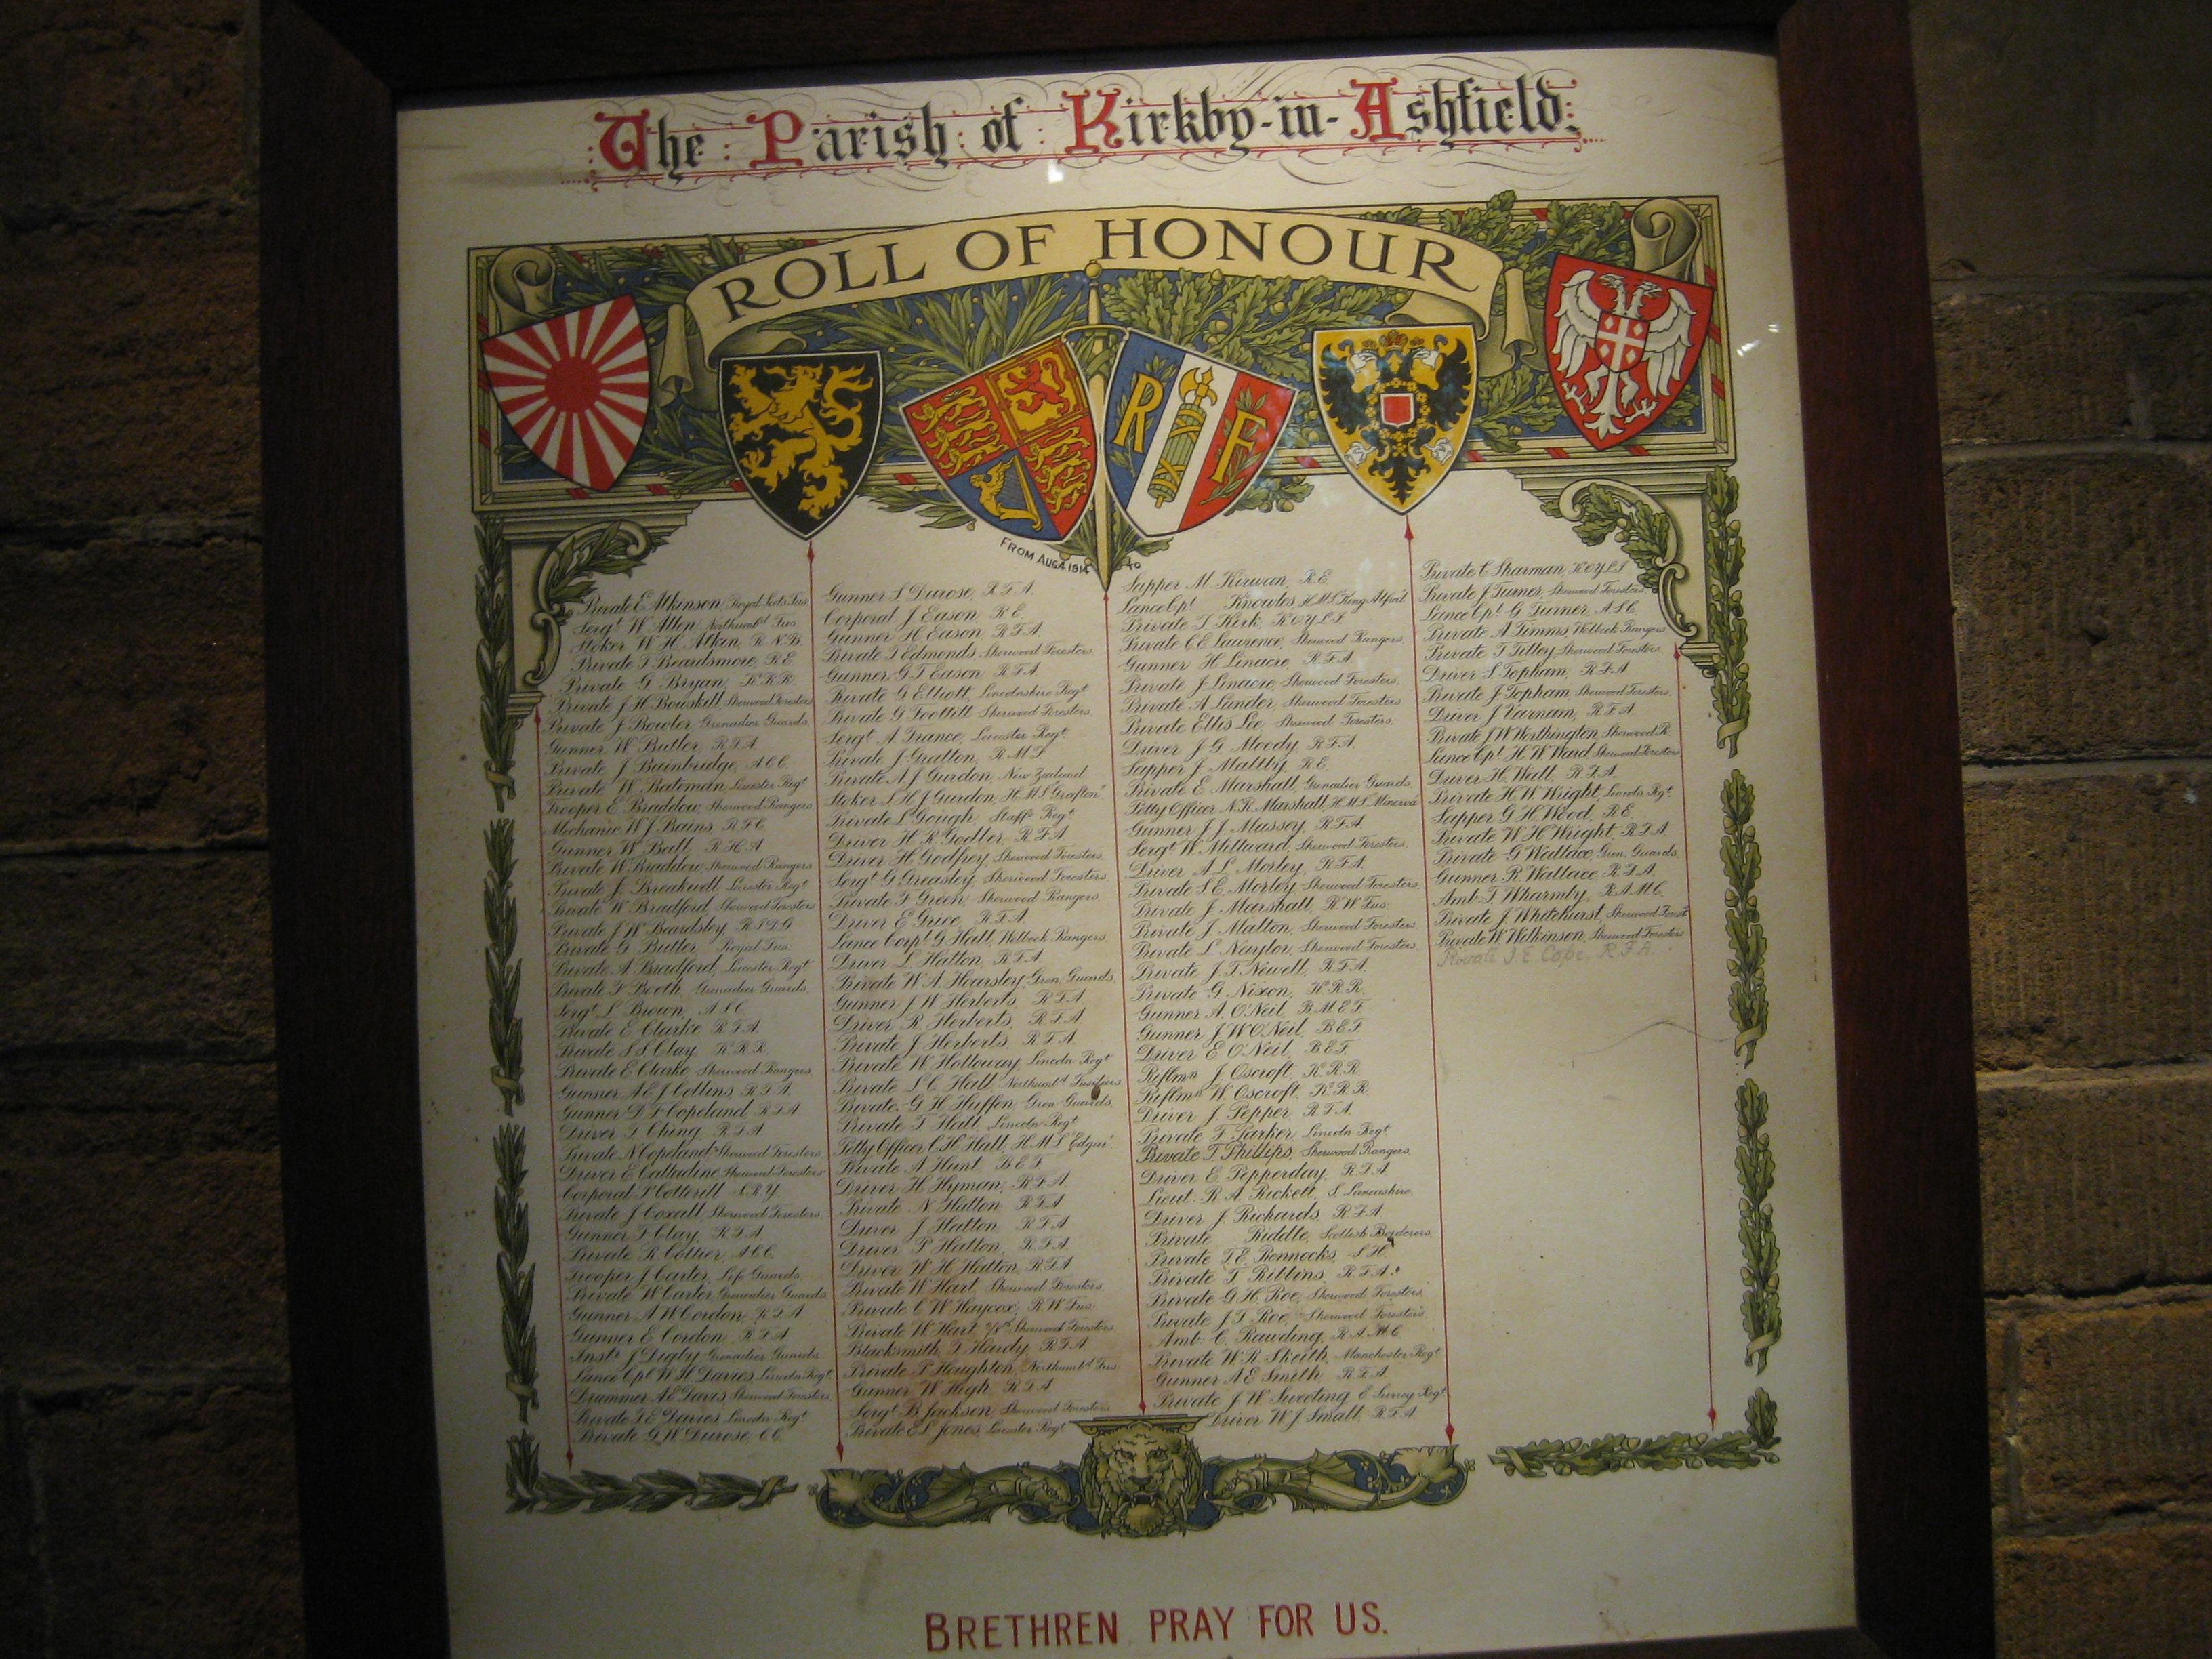 The Parish of Kirkby-in-Ashfield.
ROLL OF HONOUR
R F
FROM AUG 4 1914 TO
Private E Atkinson, Royal Scots Fus
Sergt W Allen, Northumbd Fus.
Stoker W H Atkin, R N B.
Private T Beardsmore, R E
Private G Bryan, K R R.
Private J H Bowskill Sherwood Foresters
Private J Bowler Grenadier Guards
Gunner W Butler, R F A
Private J Bainbridge, A C C
Private W Bateman, Leicester Regt
Trooper E Braddow Sherwood Rangers
Mechanic W J Bains R F C
Gunner W Ball, R H A
Private W Braddow, Sherwood Rangers
Private J Breakwell Leicester Regt
Private W Bradford, Sherwood Foresters
Private J W Beardsley
Private G Butler Royal Fus.
Private A Bradford, Leicester Regt
Private F Booth, Grenadier Guards
Sergt L Brown, A S C
Private E Clarke R F A
Private S S Clay K R R
Private E Clarke Sherwood Rangers
Gunner A E J Collins, R F A
Gunner D F Copeland R F A
Driver T Ching R F A
Private N Copeland Sherwood Foresters
Driver E Calladine Sherwood Foresters
Corporal Cotterill
Private J Coxall, Sherwood Foresters
Gunner F Clay, R F A
Private R Collier, A C C
Trooper J Carter, Life Guards
Private W Carter Grenadier Guards
Gunner A W Cordon R F A
Gunner E Cordon, R F A
Instr J Digby Grenadier Guards
Lance Cpl W H Davies Lincoln Regt
Drummer A E Davis, Sherwood Foresters
Private F E Davies Lincoln Regt
Private G W Durose
Gunner S Durose, R F A
Corporal J Eason R E
Gunner H Eason R F A
Private T Edmonds Sherwood Foresters
Gunner G T Eason R F A
Private G Elliott, Lincolnshire Regt
Private G Foottitt Sherwood Foresters
Sergt A France, Leicester Regt
Private J Gratton, R M F
Private A J Gurdon, New Zealand
Stoker S H J Gurdon, H.M.S "Grafton"
Private L Gough, Staffs Regt
Driver H R Godber, R F A
Driver H Godfrey Sherwood Foresters
Sergt G Greasley, Sherwood Foresters
Private F Green, Sherwood Rangers
Driver E Grice, R F A
Lance Corpl G Hall, Welbeck Rangers
Driver L Hallon, R F A
Private W A Hearsley, Gren Guards
Gunner J W Herberts, R F A
Driver R Herberts, R F A
Private J Herberts, R F A
Private W Holloway, Lincoln Regt
Private S C Hall Northumbd Fusiliers
Private G H Huffen Gren Guards
Private T Hall, Lincoln Regt
Petty Officer C H Hall H.M.S "Edgar"
Private A Hunt, B E F
Driver H Hyman, R F A
Private N Hallon R F A
Driver J Hallon, R F A
Driver P Hallon, R F A
Driver W H Hallon, R F A
Private W Hart, Sherwood Foresters
Private C W Haycox, R W Fus
Private W Hart Sherwood Foresters
Blacksmith T Hardy, R F A
Private P Houghton, Northumbd Fus
Gunner W High, R F A
Sergt B Jackson, Sherwood Foresters
Private E L Jones, Leicester Regt
Sapper M Kirwan R E
Lance Cpl Knowles, H.M.S King Alfred
Private T Kirk K O Y L I
Private C E Laurence, Sherwood Rangers
Gunner H Linacre, R F A
Private J Linacre, Sherwood Foresters
Private A Lander, Sherwood Foresters
Private Ellis Lee, Sherwood Foresters
Driver J G Moody R F A
Sapper J Maltby R E
Private E Marshall, Grenadier Guards
Petty Officer N R Marshall H.M.S Minerva
Gunner J J Massey, R F A
Sergt W Millward, Sherwood Foresters
Driver A L Morley, R F A
Private S E Morley Sherwood Foresters
Private J Marshall, R W Fus
Private J Matton, Sherwood Foresters
Private L Naylor, Sherwood Foresters
Private J T Newell, R F A
Private G Nixon, K R R
Gunner A O'Neil, B M E F
Gunner J W O'Neil, B E F
Driver E O'Neil, B E F
Riflmn J Oscroft, K R R
Riflmn W Oscroft, K R R
Driver J Pepper, R F A
Private F Parker, Lincoln Regt
Private T Phillips, Sherwood Rangers
Driver E Pepperday, R F A
Lieut R A Rickett, S Lancashire
Driver J Richards R F A
Private Riddle, Scottish Borderers
Private T E Rennocks, S H
Private T Ribbins R F A
Private G H Roe, Sherwood Foresters
Private J T Roe Sherwood Foresters
Amb C Rawding, R A M C
Private W R Skeith, Manchester Regt
Gunner A E Smith, R F A
Private J W Sweeting E Surrey Regt
Driver W J Small R F A
Private C Sharman, K O Y L I
Private J Turner, Sherwood Foresters
Lance Cpl G Turner, A S C
Private A Timms, Welbeck Rangers
Private T Tilley Sherwood Foresters
Driver L Topham, R F A
Private J Topham, Sherwood Foresters
Driver J Varnam, R F A
Private J W Worthington, Sherwood R
Lance Cpl H W Ward Sherwood Foresters
Driver H Wall R F A
Private H W Wright, Lincoln Rgt
Sapper G H Wood, R E
Private W H Wright, R F A
Private G Wallace, Gren. Guards
Gunner R Wallace R F A
Amb T Wharmby, R A M C
Private J Whitehurst, Sherwood Forest
Private W Wilkinson, Sherwood Foresters
Private J. E. Cope, R. F. A.
BRETHREN PRAY FOR US.